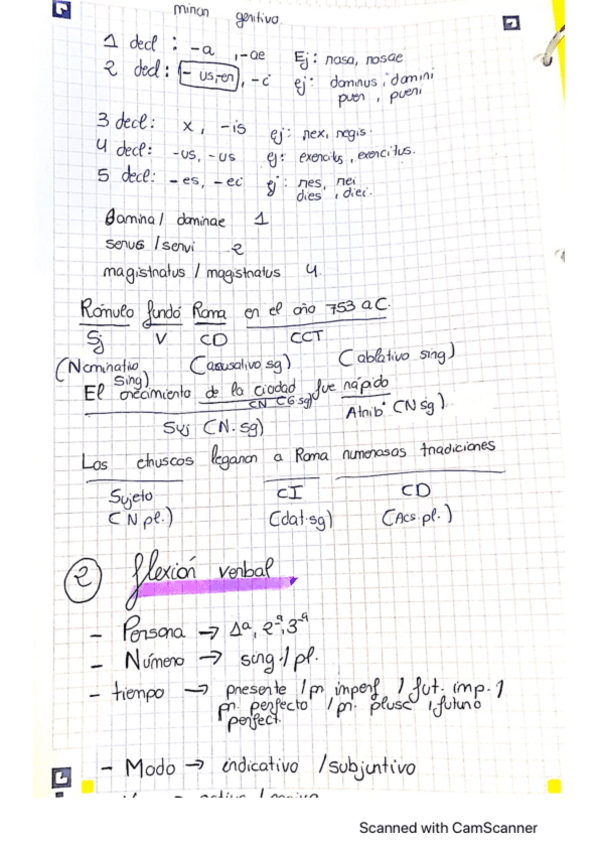 minan genitivo.
1 decl : -a , -ae Ej: rosa, rosae
2 decl: - us, -er , -i ej: dominus, domini
puer, pueri
3 decl: x, -is ej: rex, regis.
4 decl: -us, -us ej: exercitus, exercitus.
5 decl: -es, -ei ej: res, rei
dies, diei.
Domina / dominae 1
servus / servi 2
magistratus / magistratus 4.
Rómulo fundó Roma en el año 753 a C.
Sj V CD CCT
(Nominativo Sing) (acusativo sg) (ablativo sing)
El crecimiento de la ciudad fue rápido
CN CG sg) Atrib. (N sg)
Suj (N. sg)
Los etruscos legaron a Roma numerosas tradiciones
Sujeto CI CD
(N pl.) (dat. sg) (Acs. pl.)
2 flexión verbal
- Persona → 1ª, 2ª, 3ª
- Número → sing / pl.
- tiempo → presente / pr imperf / fut. imp. /
pr. perfecto / pr. plusc / futuro
perfect.
- Modo → indicativo / subjuntivo
Scanned with CamScanner